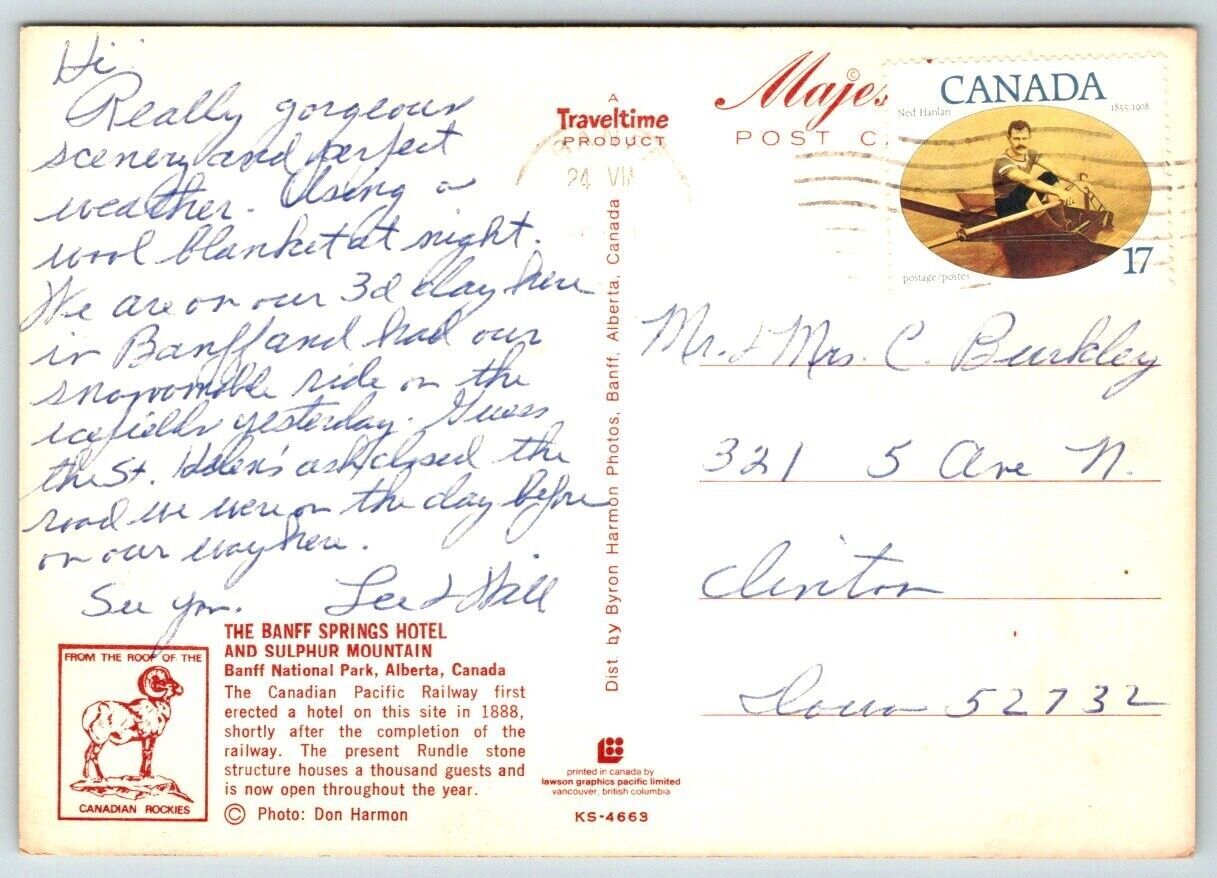 Hi
Really gorgeous
scenery and perfect
weather. Using a
wool blanket at night.
We are on our 3d day here
in Banff and had our
snowmobile ride on the
icefields yesterday. Guess
the St. Helen's ash closed the
road we were on the day before
on our way here.
See you. Lee & Will
FROM THE ROOF OF THE
CANADIAN ROCKIES
THE BANFF SPRINGS HOTEL
AND SULPHUR MOUNTAIN
Banff National Park, Alberta, Canada
The Canadian Pacific Railway first
erected a hotel on this site in 1888,
shortly after the completion of the
railway. The present Rundle stone
structure houses a thousand guests and
is now open throughout the year.
© Photo: Don Harmon
A
Traveltime
PRODUCT
24 VII
Dist by Byron Harmon Photos, Banff, Alberta, Canada
printed in canada by
lawson graphics pacific limited
vancouver, british columbia
KS-4663
Majes
©
POST C
CANADA
Ned Hanlan
1855 1908
postage/postes
17
Mr. & Mrs C. Burkley
321 5 Ave N.
Clinton
Iowa 52732